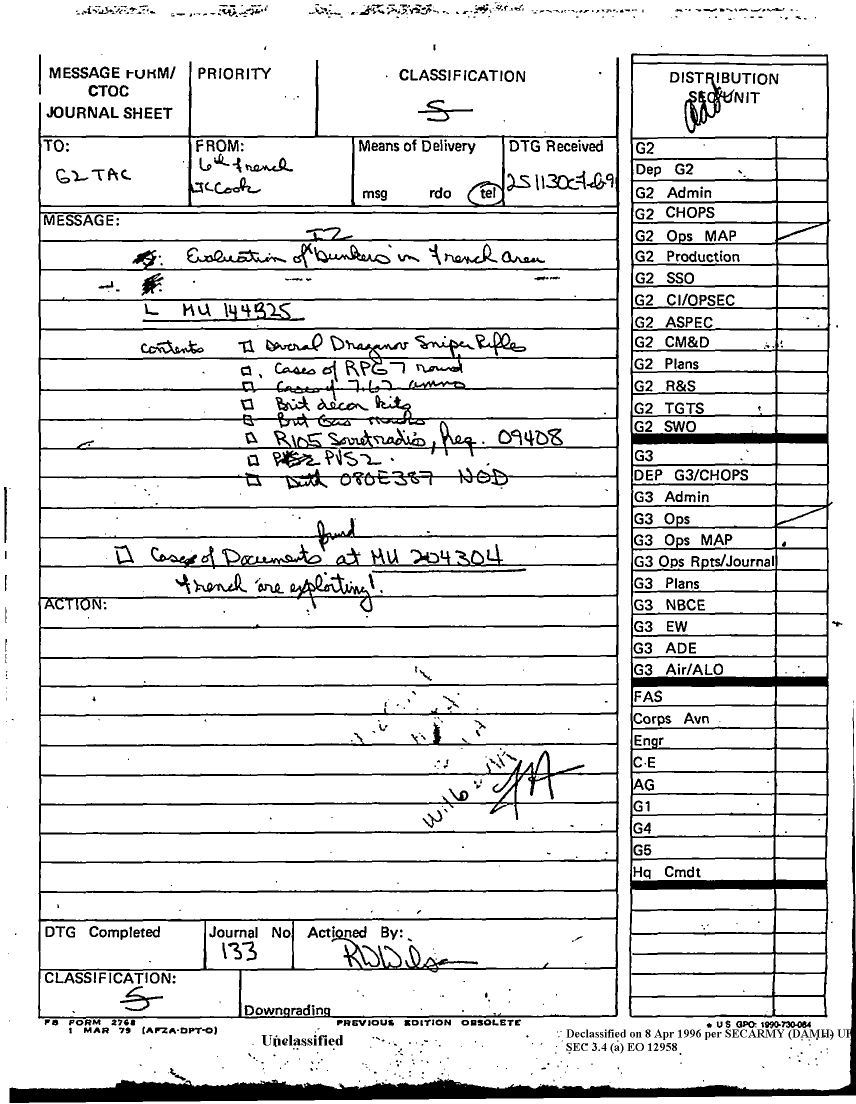 MESSAGE FORM/
CTOC
JOURNAL SHEET
PRIORITY
CLASSIFICATION
S
TO:
G2 TAC
FROM:
6th French
LTC Cook
Means of Delivery
msg rdo tel
DTG Received
MESSAGE:
IZ
Evaluation of "bunkers" in French area
L MU 144325
Contents
Several Draganov Sniper Rifles
Cases of RPG 7 round
Cases of 7.62 ammo
Brit decon kits
Brit Gas masks
R105 Soviet radios, freq. 09408
PVS2
080E387 NOD
found
Cases of Documents at MU 204304
French are exploiting!
ACTION:
DTG Completed
Journal No
133
Actioned By:
RW Wilson
CLASSIFICATION:
S
Downgrading
FB FORM 2768
1 MAR 79 (AFZA-DPT-O)
PREVIOUS EDITION OBSOLETE
Unclassified
DISTRIBUTION
SEC/UNIT
G2
Dep G2
G2 Admin
G2 CHOPS
G2 Ops MAP
G2 Production
G2 SSO
G2 CI/OPSEC
G2 ASPEC
G2 CM&D
G2 Plans
G2 R&S
G2 TGTS
G2 SWO
G3
DEP G3/CHOPS
G3 Admin
G3 Ops
G3 Ops MAP
G3 Ops Rpts/Journal
G3 Plans
G3 NBCE
G3 EW
G3 ADE
G3 Air/ALO
FAS
Corps Avn
Engr
C-E
AG
G1
G4
G5
Hq Cmdt
★ U S GPO: 1990-730-084
Declassified on 8 Apr 1996 per SECARMY (DAMH) U
SEC 3.4 (a) EO 12958